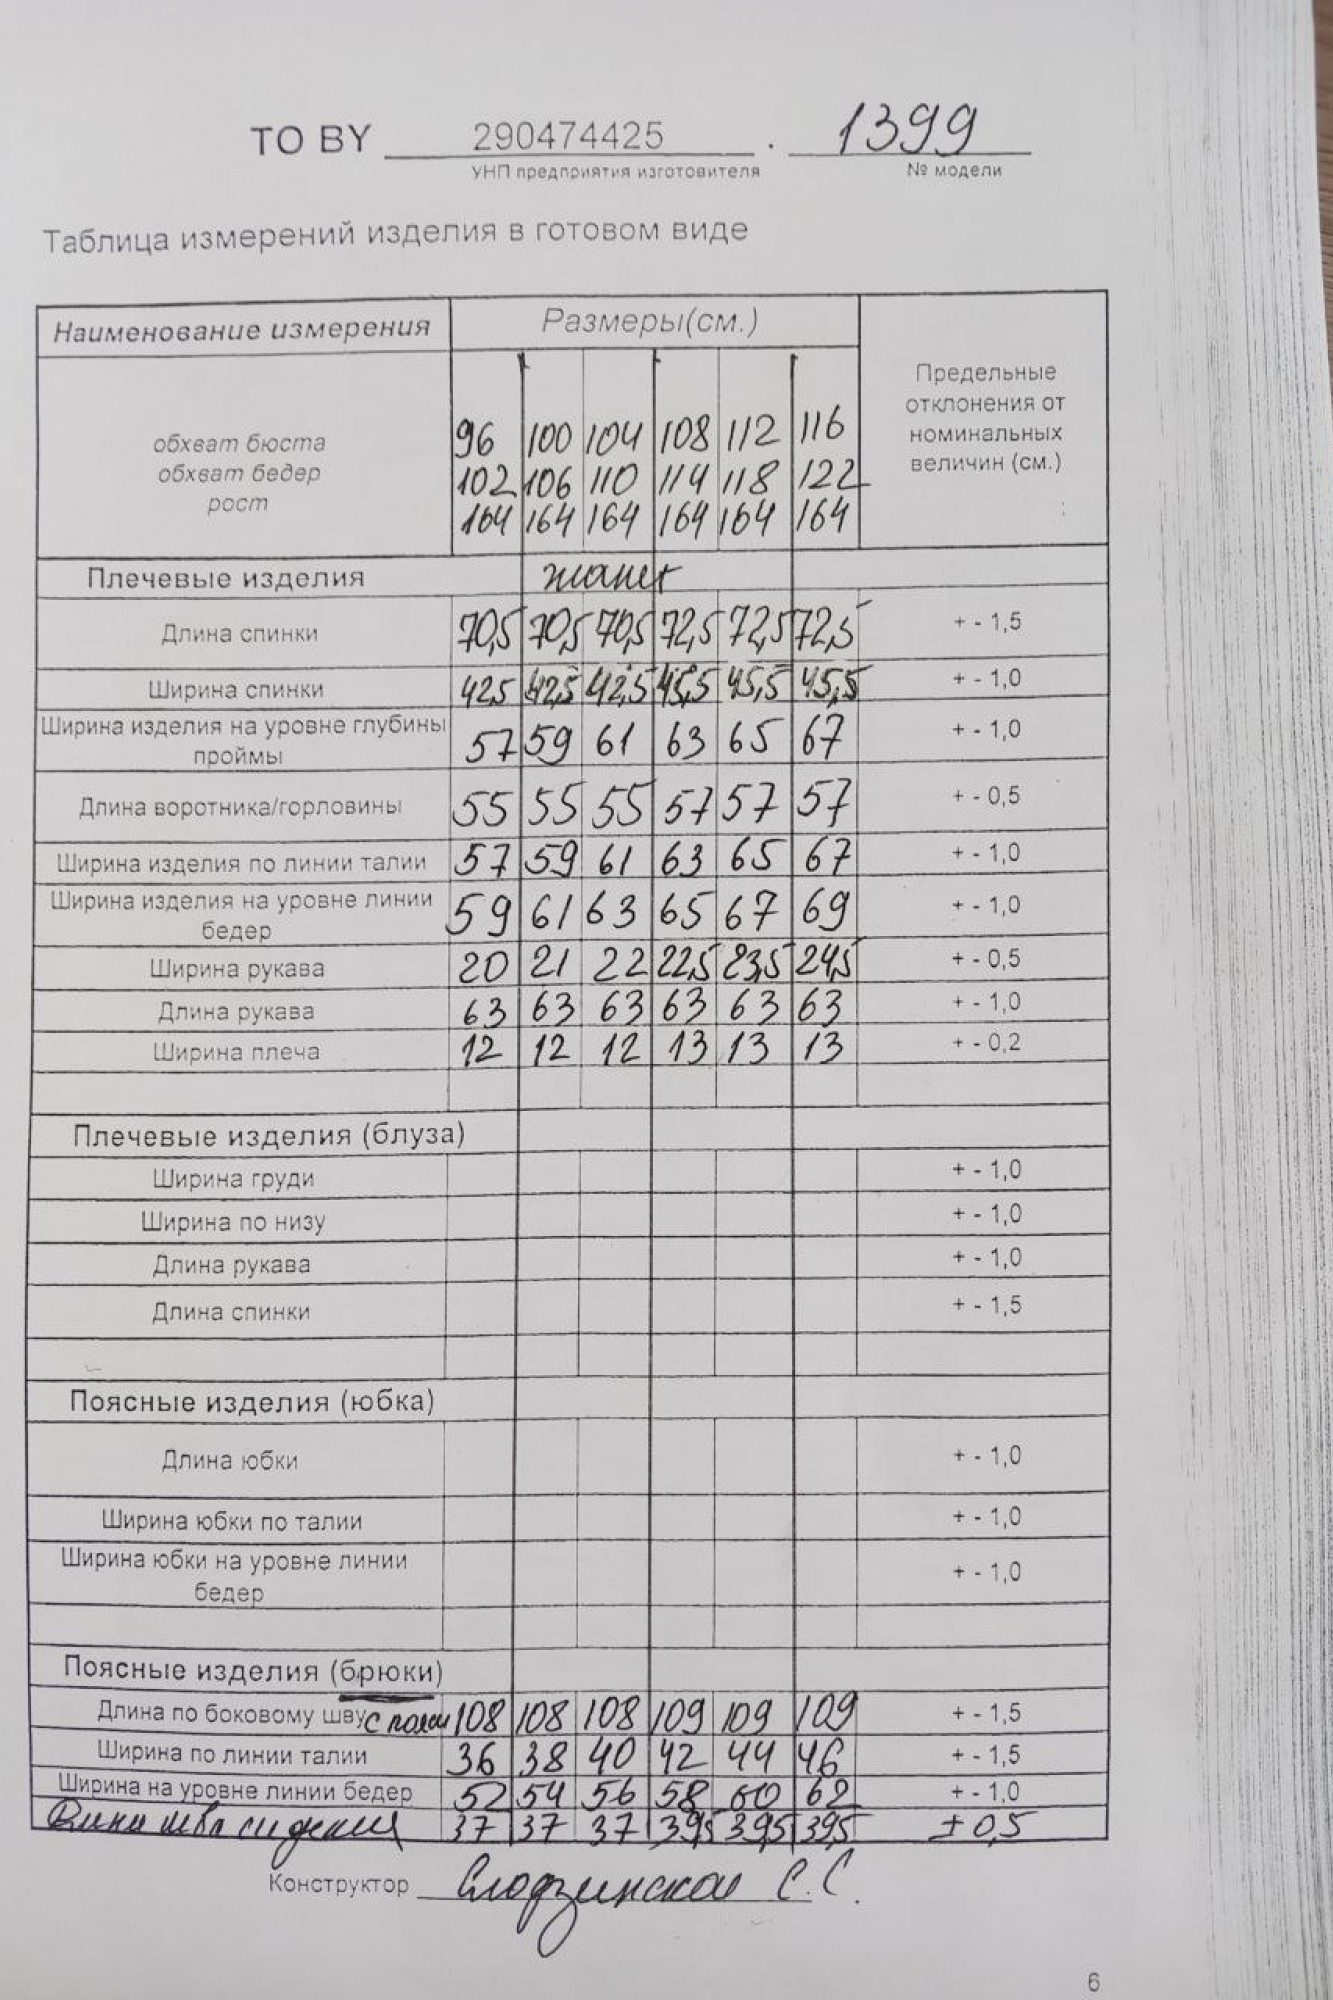 TO BY 290474425 . 1399
УНП предприятия изготовителя № модели
Таблица измерений изделия в готовом виде
Наименование измерения Размеры(см.) Предельные отклонения от номинальных величин (см.)
обхват бюста 96 100 104 108 112 116
обхват бедер 102 106 110 114 118 122
рост 164 164 164 164 164 164
Плечевые изделия жакет
Длина спинки 70,5 70,5 70,5 72,5 72,5 72,5 + - 1,5
Ширина спинки 42,5 42,5 42,5 45,5 45,5 45,5 + - 1,0
Ширина изделия на уровне глубины
проймы 57 59 61 63 65 67 + - 1,0
Длина воротника/горловины 55 55 55 57 57 57 + - 0,5
Ширина изделия по линии талии 57 59 61 63 65 67 + - 1,0
Ширина изделия на уровне линии
бедер 59 61 63 65 67 69 + - 1,0
Ширина рукава 20 21 22 22,5 23,5 24,5 + - 0,5
Длина рукава 63 63 63 63 63 63 + - 1,0
Ширина плеча 12 12 12 13 13 13 + - 0,2
Плечевые изделия (блуза)
Ширина груди + - 1,0
Ширина по низу + - 1,0
Длина рукава + - 1,0
Длина спинки + - 1,5
Поясные изделия (юбка)
Длина юбки + - 1,0
Ширина юбки по талии + - 1,0
Ширина юбки на уровне линии
бедер + - 1,0
Поясные изделия (брюки)
Длина по боковому шву с пояс 108 108 108 109 109 109 + - 1,5
Ширина по линии талии 36 38 40 42 44 46 + - 1,5
Ширина на уровне линии бедер 52 54 56 58 60 62 + - 1,0
Длина шва сидения 37 37 37 39,5 39,5 39,5 ± 0,5
Конструктор Слодзинская С.С.
6